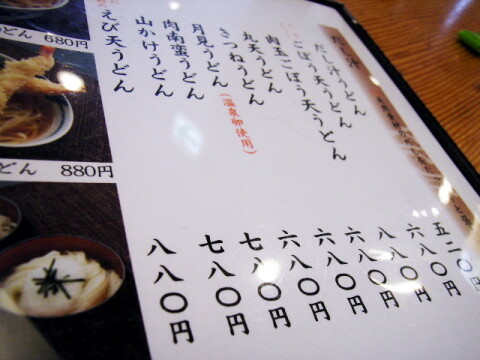 だし汁うどん
ごぼう天うどん
肉玉ごぼう天うどん
丸天うどん
きつねうどん
月見うどん
(温泉卵使用)
肉南蛮うどん
山かけうどん
えび天うどん
五二〇
六八〇円
八八〇円
六八〇円
六八〇円
六八〇円
七八〇円
七八〇円
八八〇円
どん 680円
どん 880円